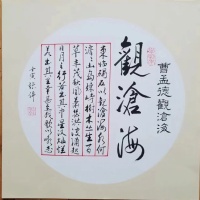 曹孟德觀滄海
觀滄海
東臨碣石以觀滄海水何
澹澹山島竦峙樹木叢生百
草豐茂秋風蕭瑟洪波涌起
日月之行若出其中星漢燦爛
若出其裏幸甚至哉歌以詠志